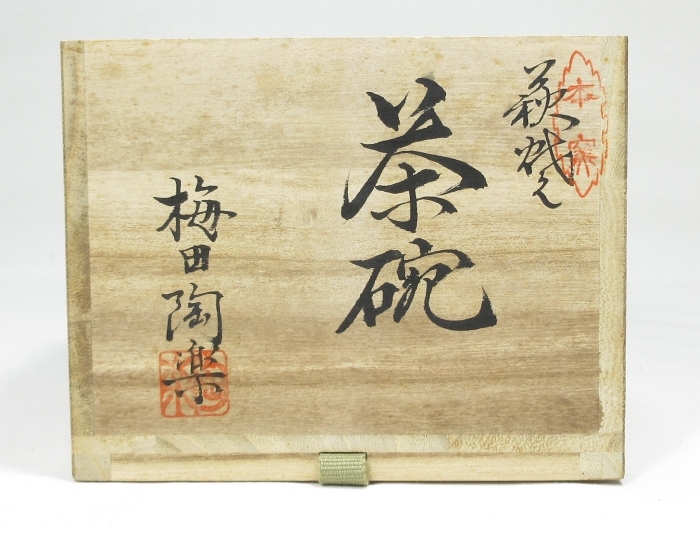 萩焼
茶碗
梅田陶楽
本窯